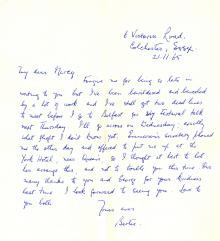 6 Victoria Road,
Colchester, Essex
21.11.65
My dear Mercy,
Forgive me for being so late in
writing to you but I've been bewildered and
by a lot of work and I've still got two dead lines
to meet before I go to Belfast for my Festival talk
next Thursday. I'll go across on Wednesday; exactly
what flight I don't know yet. secretary phoned
me the other day and offered to put me up at the
York Hotel, near Queen's so I thought it best to let
her arrange this, and not to trouble you this time.
many thanks to you and George for your kindness
last time. I look forward to seeing you. Love to
you both
Yours ever
Bertie.